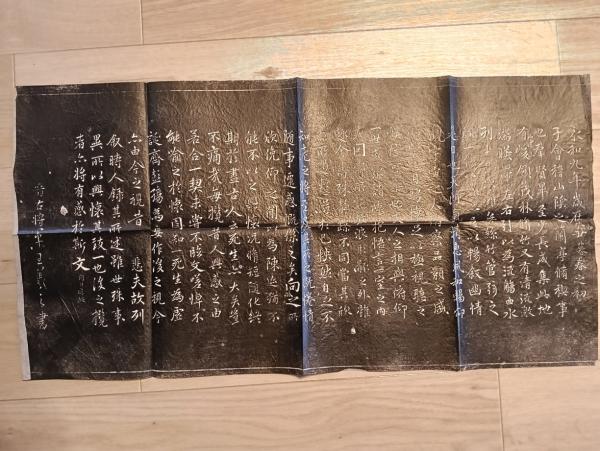 永和九年歲在癸丑暮春之初
于會稽山陰之蘭亭脩稧事
也羣賢畢至少長咸集此地
有峻領茂林脩竹又有清流激
湍暎左右引以為流觴曲水
列坐絲竹管弦之
一以暢敘幽情
是日也天朗惠風和暢仰
觀察品類之盛
極視聽之
人之相與俯仰
懷抱悟言一室之內
因骸之外雖
趣舍萬殊靜躁不同當其欣
快然自足不
知老之將至及其所之既惓情
隨事遷感慨係之矣向之所
欣俛仰之間以為陳迹猶不
能不以之興懷況脩短隨化終
期於盡古人云死生亦大矣豈
不痛哉每攬昔人興感之由
若合一契未嘗不臨文嗟悼不
能喻之於懷固知一死生為虛
誕齊彭殤為妄作後之視今
亦由今之視昔悲夫故列
敘時人錄其所述雖世殊事
異所以興懷其致一也後之攬
者亦將有感於斯文
晉右將軍王羲之書